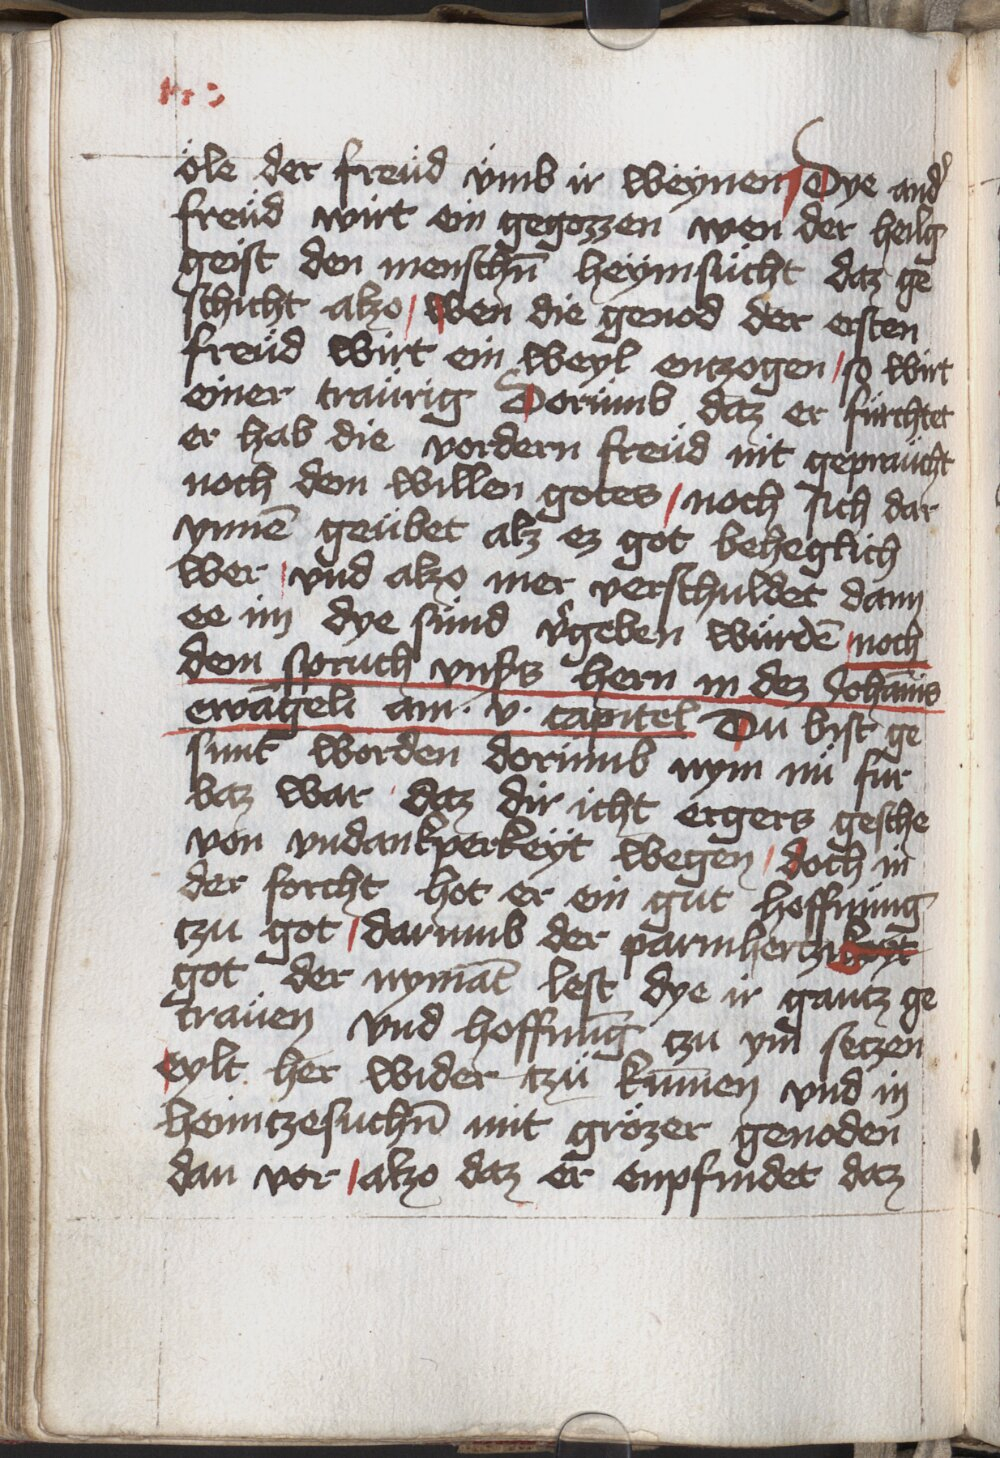 öle der freüd ümb ir weÿnen / Dye and͛
freüd wirt ein gegozzen wen der heilg
geist den menschn̄ heÿmsücht daz ge
schicht alzo / wen die genod der ersten
freüd wirt ein weyl entzogen / so wirt
einer traürig Dorümb daz er fürchtet
er hab die vordern freüd nit gepraücht
noch dem willen gotes / noch sich dar
ynnē geübet alz ez got beheglich
wer / vnd alzo mer verschuldet dann
ee im dye sünd v͛geben würdē / noch
dem spruch vnsʳs hern in dez Johānis
ewāgeli am · v · capitel Du bist ge
sunt worden dorümb nym nü für
baz war daz dir icht ergers gesche
von vndankperkeÿt wegen / doch in
der forcht hot er ein güt hoffnüng
tzu got / darumb der parmhertzikeyt
got der nymāt lest dye ir gantz ge
traüen vnd hoffnūg tzu ym setzen
eylt her wider tzü kūmen vnd in
heimtzesuchn̄ mit grözer genoden
dan vor / alzo daz er enpfindet daz